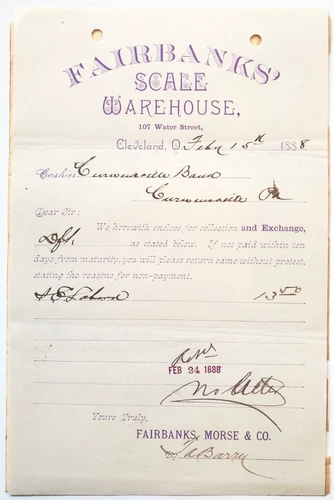 FAIRBANKS'
SCALE
WAREHOUSE,
107 Water Street,
Cleveland, O. Feby 15th 1888
Cashier Curwensville Bank
Curwensville Pa
Dear Sir:
We herewith enclose for collection and Exchange,
Dft. as stated below. If not paid within ten
days from maturity, you will please return same without protest,
stating the reasons for non-payment.
13 50
FEB 24 1888
Yours Truly,
FAIRBANKS, MORSE & CO.
By Barry